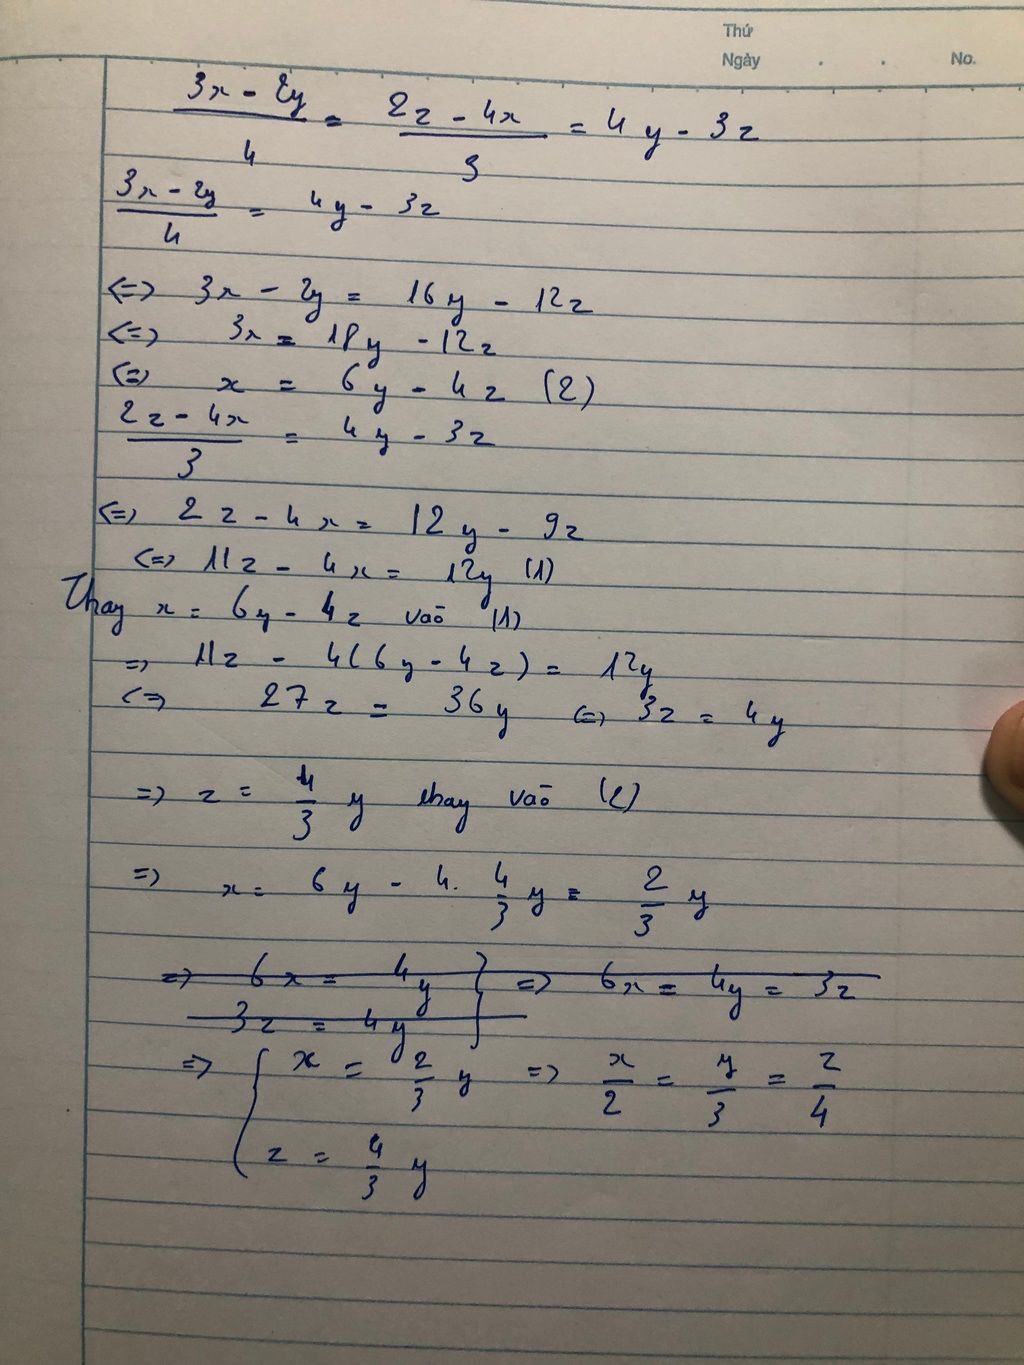 Thứ
Ngày . . No.
(3x - 2y)/4 = (2z - 4x)/3 = 4y - 3z
(3x - 2y)/4 = 4y - 3z
<=> 3x - 2y = 16y - 12z
<=> 3x = 18y - 12z
<=> x = 6y - 4z (2)
(2z - 4x)/3 = 4y - 3z
<=> 2z - 4x = 12y - 9z
<=> 11z - 4x = 12y (1)
Thay x = 6y - 4z vaò (1)
=> 11z - 4(6y - 4z) = 12y
<=> 27z = 36y <=> 3z = 4y
=> z = 4/3 y thay vaò (2)
=> x = 6y - 4. 4/3 y = 2/3 y
=> 6x = 4y } => 6x = 4y = 3z
3z = 4y
=> { x = 2/3 y => x/2 = y/3 = z/4
z = 4/3 y